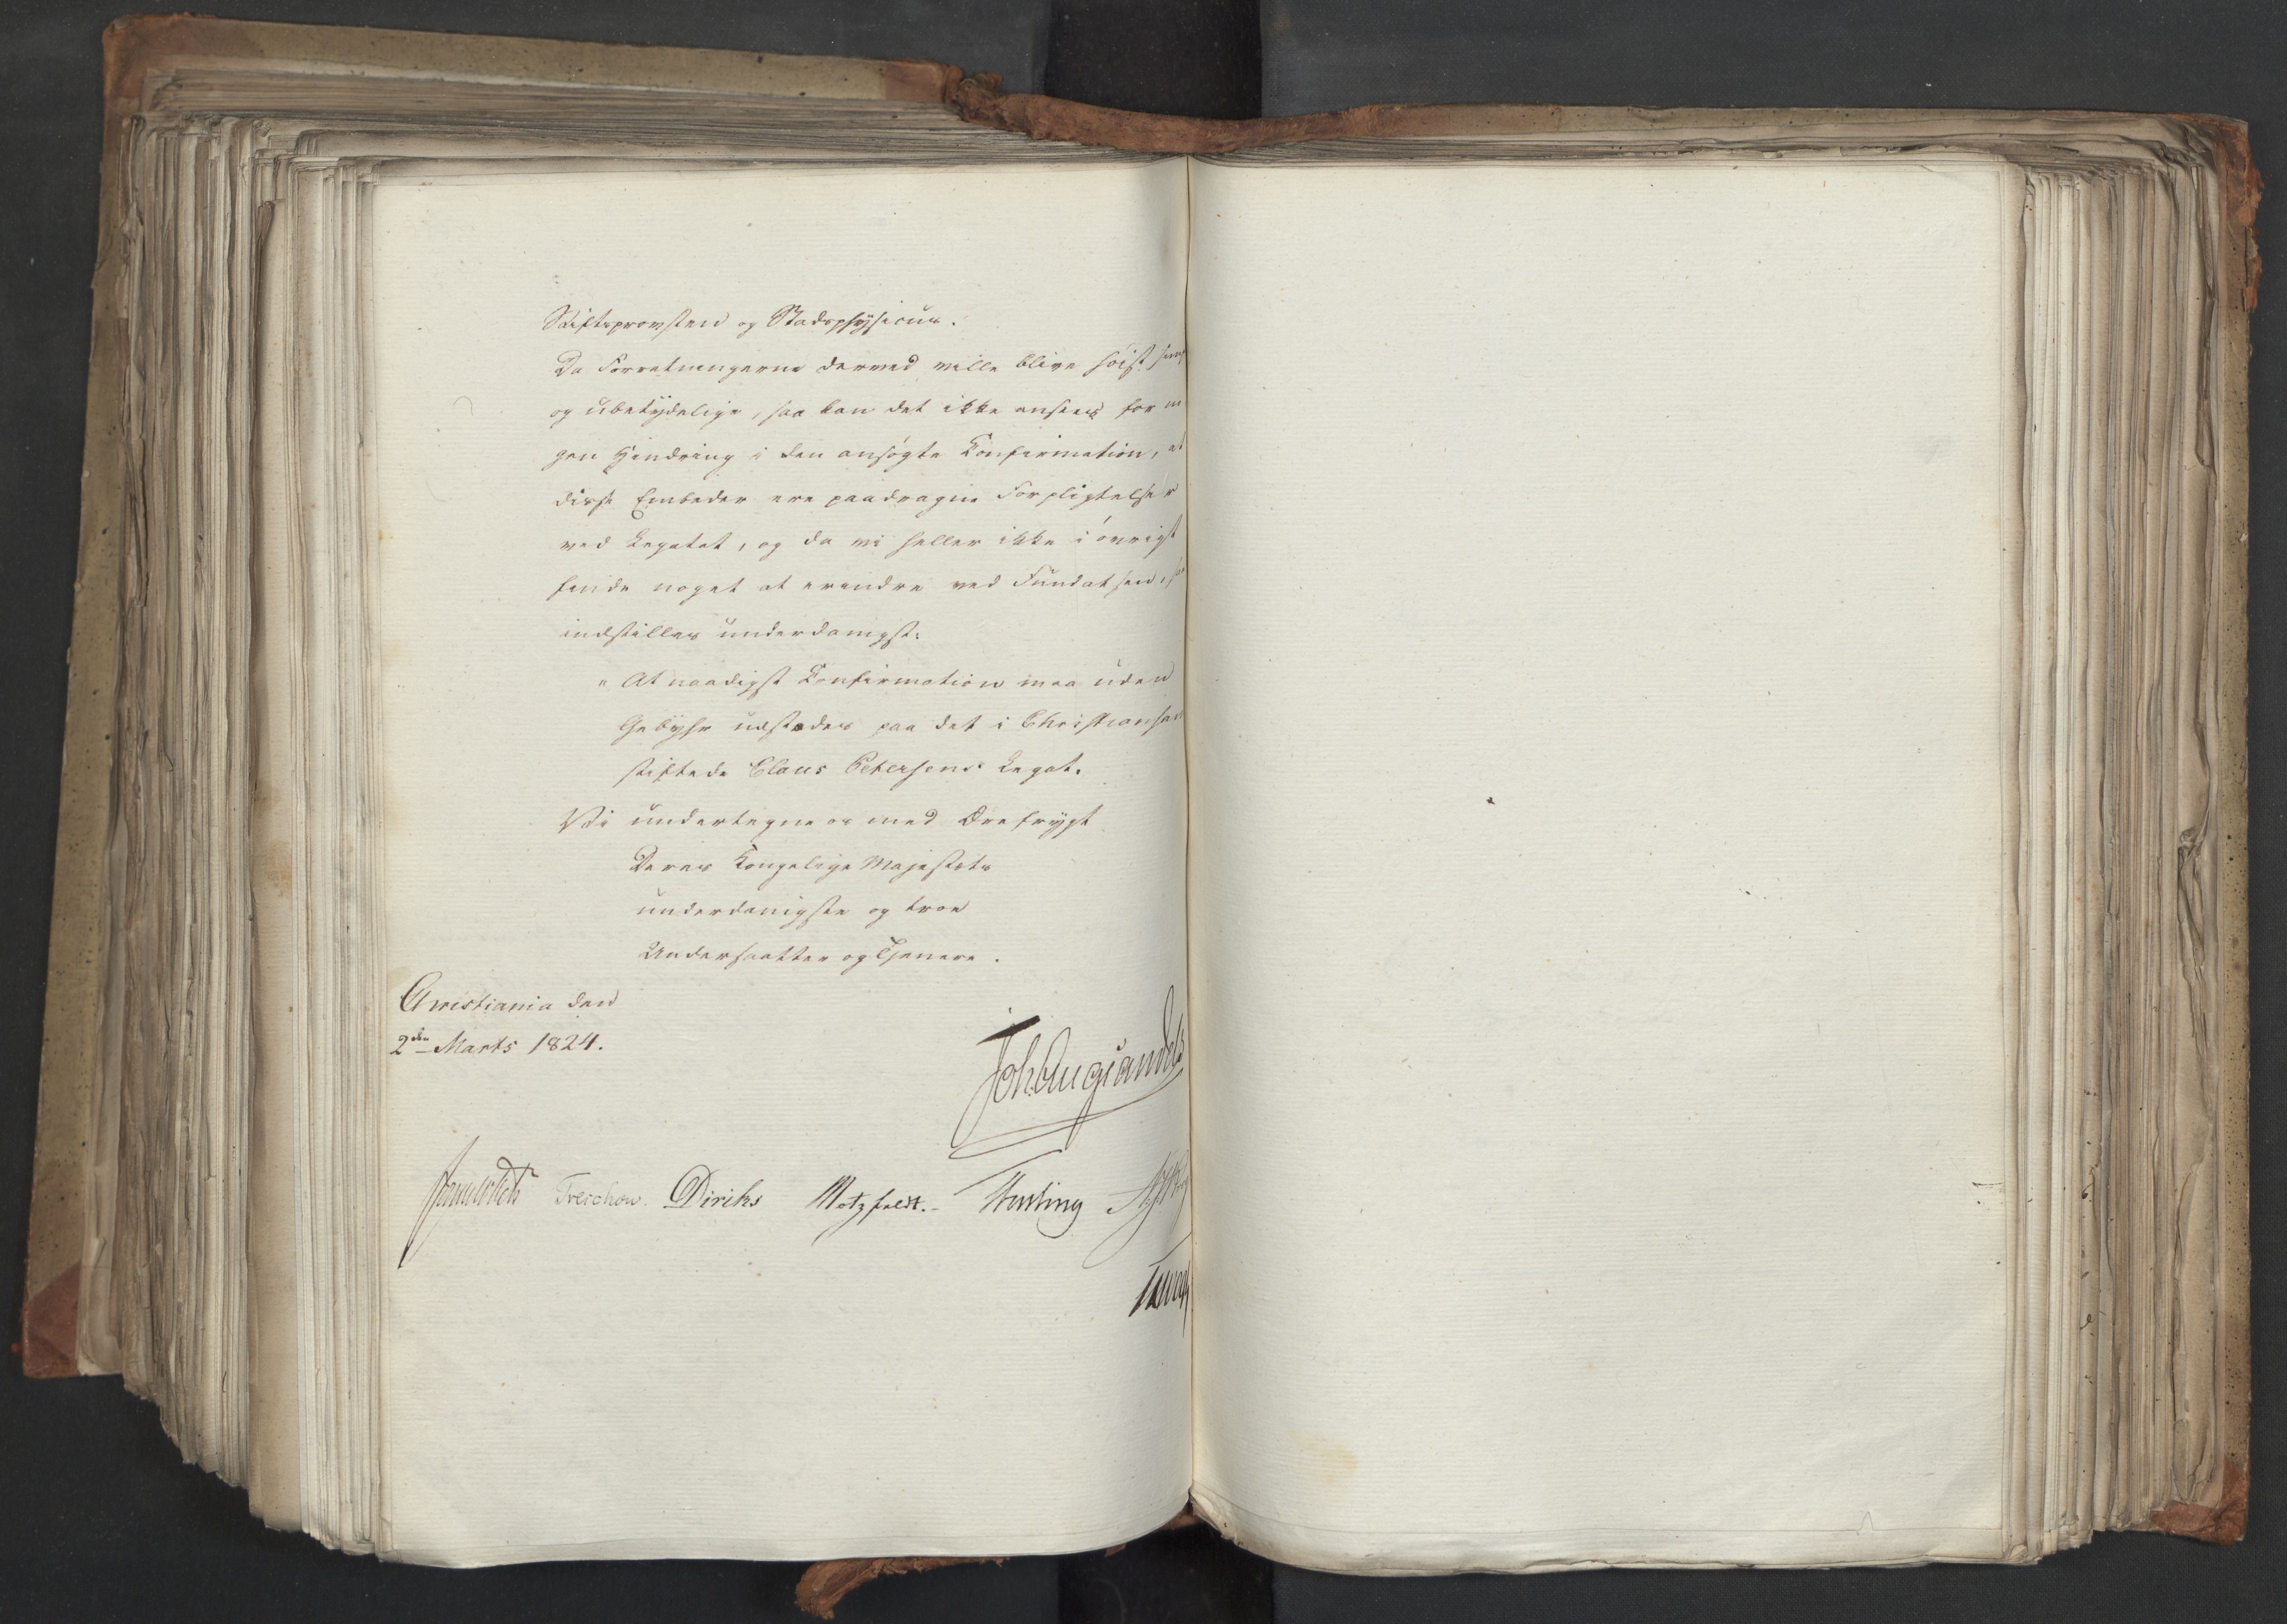 Stiftsprovsten og Stadsphysicus.
Da Forretningerne derved ville blive høist
og ubetydelige, saa kan det ikke ansees for
gen Hindring i den ansøgte Confirmation, at
disse Embeder ere paadragne Forpligtelser
ved Legatet, og da vi heller ikke i øvrigt
finde noget at erindre ved Fundatsen,
indstilles underdanigst:
"At naadigst Confirmation maa uden
Gebyhr udstedes paa det i Christiansan
stiftede Claus Petersens Legat.
Vi undertegne os med Ærefrygt
Deres Kongelige Majestets
underdanigste og troe
Undersaatter og Tjenere.
Christiania den
2den Marts 1824.
Joh. Aug. Sandels
Sommerhielm Treschow. Diriks Motzfeldt. Hesting